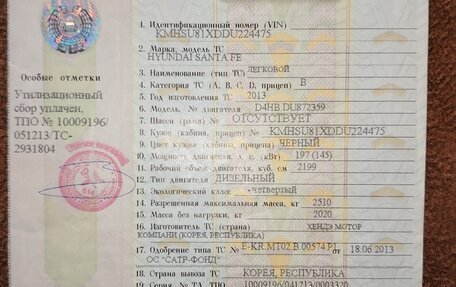 1. Идентификационный номер (VIN)
KMHSU81XDDU224475
2. Марка, модель ТС
HYUNDAI SANTA FE
3. Наименование (тип ТС) ЛЕГКОВОЙ
4. Категория ТС (A, B, C, D, прицеп) B
5. Год изготовления ТС 2013
6. Модель, № двигателя D4HB DU872359
7. Шасси (рама) № ОТСУТСТВУЕТ
8. Кузов (кабина, прицеп) № KMHSU81XDDU224475
9. Цвет кузова (кабины, прицепа) ЧЕРНЫЙ
10. Мощность двигателя, л. с. (кВт) 197 (145)
11. Рабочий объем двигателя, куб. см 2199
12. Тип двигателя ДИЗЕЛЬНЫЙ
13. Экологический класс -четвертый
14. Разрешенная максимальная масса, кг 2510
15. Масса без нагрузки, кг 2020
16. Изготовитель ТС (страна) ХЕНДЭ МОТОР
КОМПАНИ (КОРЕЯ, РЕСПУБЛИКА)
17. Одобрение типа ТС № E-KR.MT02.B.00574.P1 от 18.06.2013
ОС "САТР-ФОНД"
18. Страна вывоза ТС КОРЕЯ, РЕСПУБЛИКА
19. Серия, № ТД, ТПО 10009196/041213/0003320
Особые отметки
Утилизационный
сбор уплачен,
ТПО № 10009196/
051213/ТС-
2931804